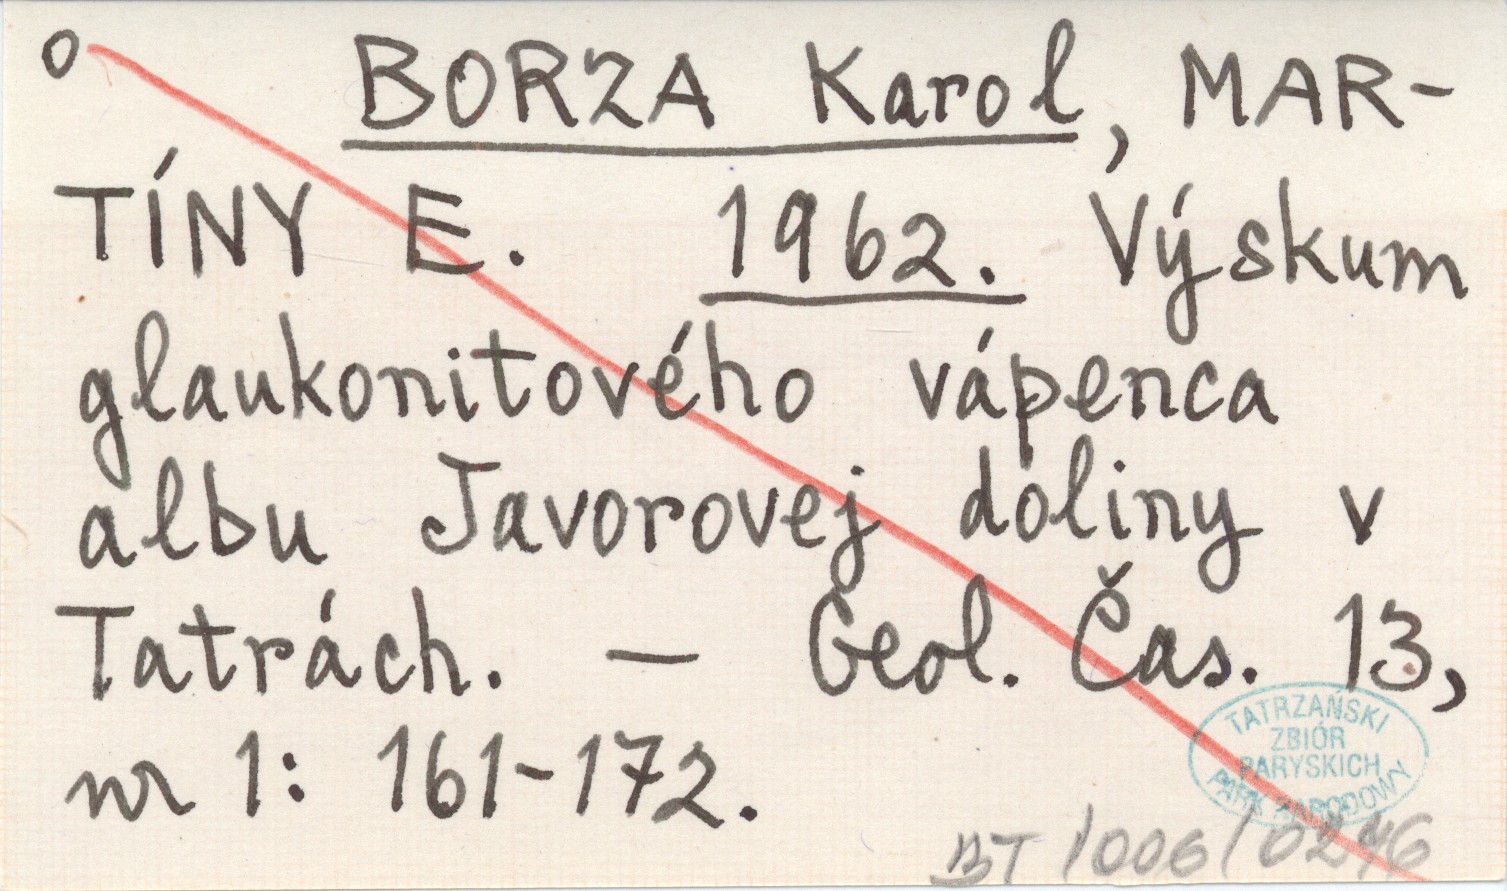 o BORZA Karol, MAR-
TÍNY E. 1962. Výskum
glaukonitového vápenca
albu Javorovej doliny v
Tatrách. — Geol. Čas. 13,
nr 1: 161-172.
TATRZAŃSKI
ZBIÓR
PARYSKICH
PARK NARODOWY
BT /006/0246